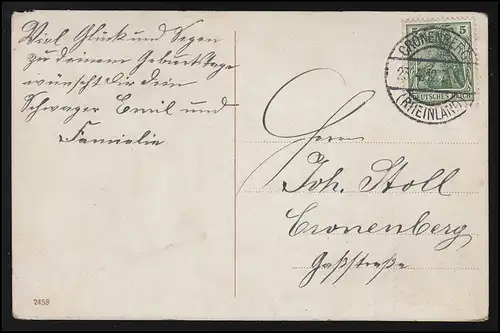 Viel Glück und Segen
zu deinem Geburtstage
wünscht dir dein
Schwager Emil und
Famielie
5
CRONENBERG
(RHEINLAND)
DEUTSCHES REICH
Herrn
Joh. Stoll
Cronenberg
Gaßstraße
2458